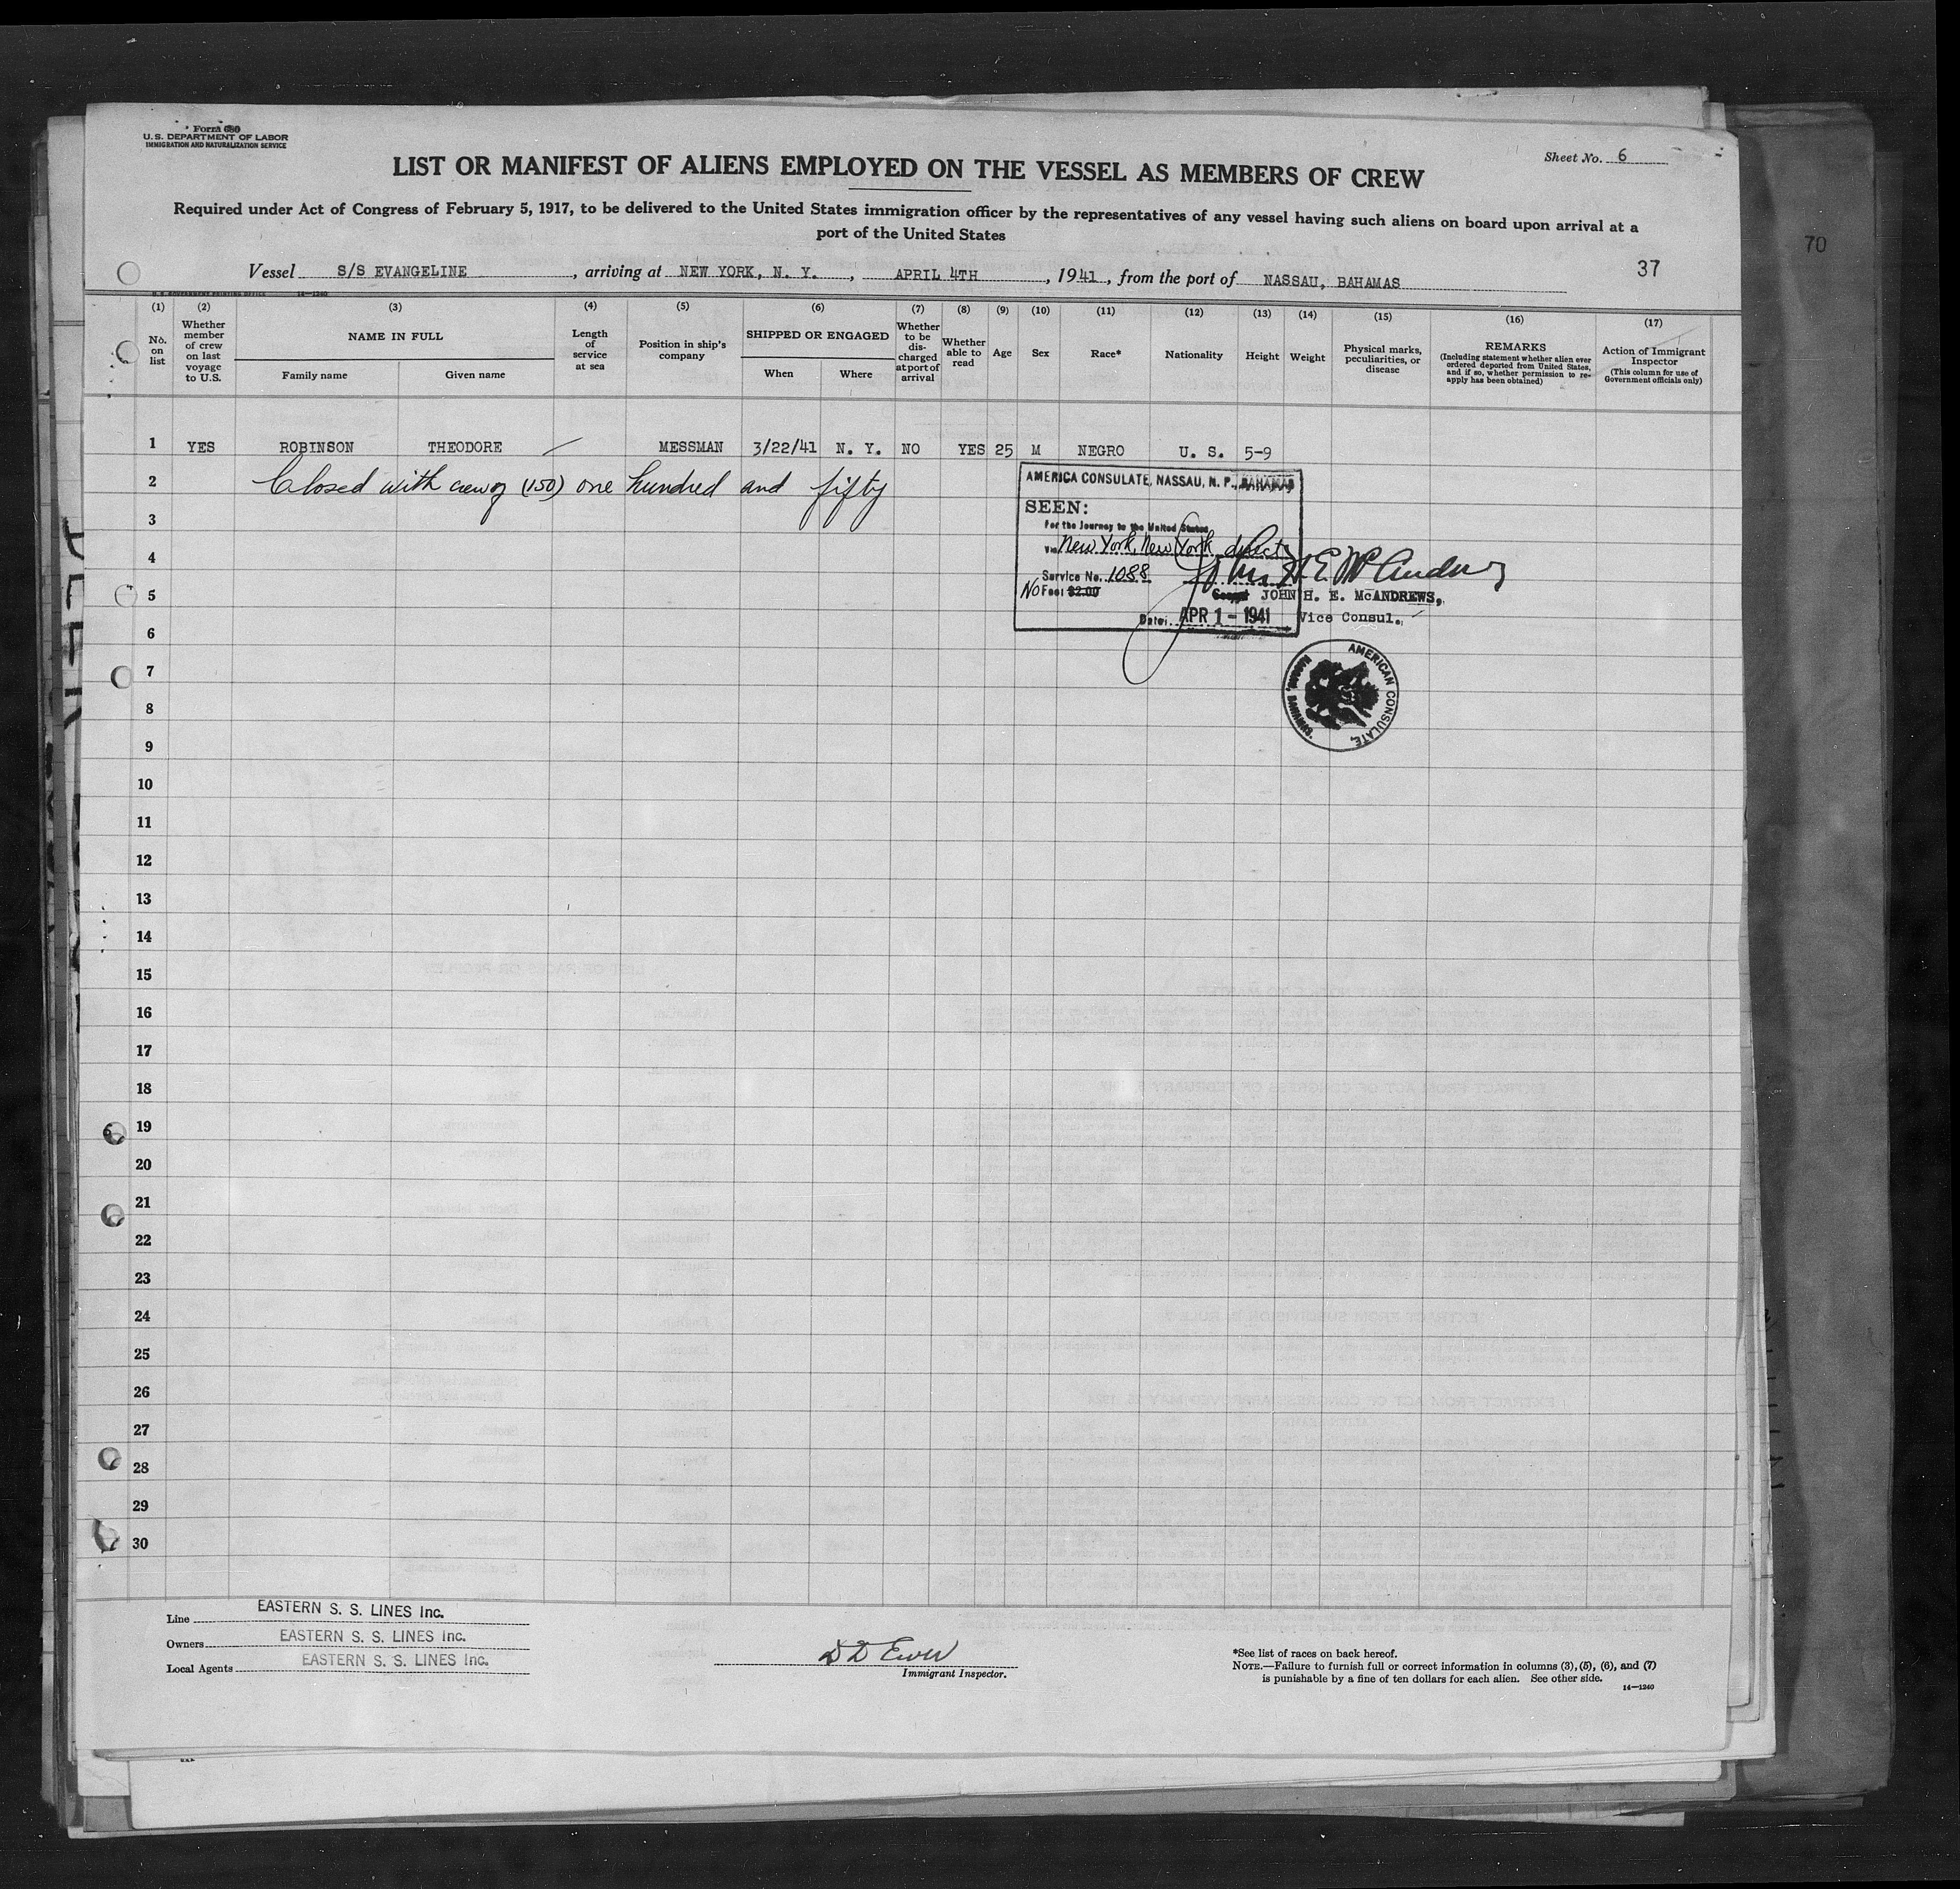 Form 680
U.S. DEPARTMENT OF LABOR
IMMIGRATION AND NATURALIZATION SERVICE
Sheet No. 6
LIST OR MANIFEST OF ALIENS EMPLOYED ON THE VESSEL AS MEMBERS OF CREW
Required under Act of Congress of February 5, 1917, to be delivered to the United States immigration officer by the representatives of any vessel having such aliens on board upon arrival at a
port of the United States
70
37
Vessel S/S EVANGELINE, arriving at NEW YORK, N. Y., APRIL 4TH, 1941, from the port of NASSAU, BAHAMAS
(1) (2) (3) (4) (5) (6) (7) (8) (9) (10) (11) (12) (13) (14) (15) (16) (17)
No. on list
Whether member of crew on last voyage to U.S.
NAME IN FULL
Family name
Given name
Length of service at sea
Position in ship's company
SHIPPED OR ENGAGED
When
Where
Whether to be dis-charged at port of arrival
Whether able to read
Age
Sex
Race*
Nationality
Height
Weight
Physical marks, peculiarities, or disease
REMARKS
(Including statement whether alien ever ordered deported from United States, and if so, whether permission to re-apply has been obtained)
Action of Immigrant Inspector
(This column for use of Government officials only)
1 YES ROBINSON THEODORE MESSMAN 3/22/41 N. Y. NO YES 25 M NEGRO U. S. 5-9
2 Closed with crew of (150) one hundred and fifty
AMERICA CONSULATE, NASSAU, N. P., BAHAMAS
SEEN:
For the Journey to the United States
Via New York, New York direct
Service No. 1088
No Fee: $2.00
John H. E. McAndrews
JOHN H. E. McANDREWS,
Date: APR 1 - 1941
Vice Consul.
AMERICAN CONSULATE,
NASSAU, BAHAMAS.
3
4
5
6
7
8
9
10
11
12
13
14
15
16
17
18
19
20
21
22
23
24
25
26
27
28
29
30
Line EASTERN S. S. LINES Inc.
Owners EASTERN S. S. LINES Inc.
Local Agents EASTERN S. S. LINES Inc.
Immigrant Inspector.
*See list of races on back hereof.
NOTE.—Failure to furnish full or correct information in columns (3), (5), (6), and (7)
is punishable by a fine of ten dollars for each alien. See other side.
14—1240